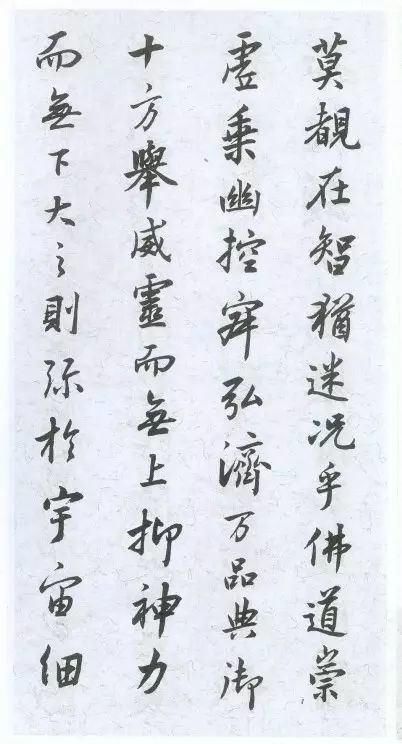 莫覩在智猶迷況乎佛道崇
虛乘幽控寂弘濟万品典御
十方舉威靈而無上抑神力
而無下大之則弥於宇宙細